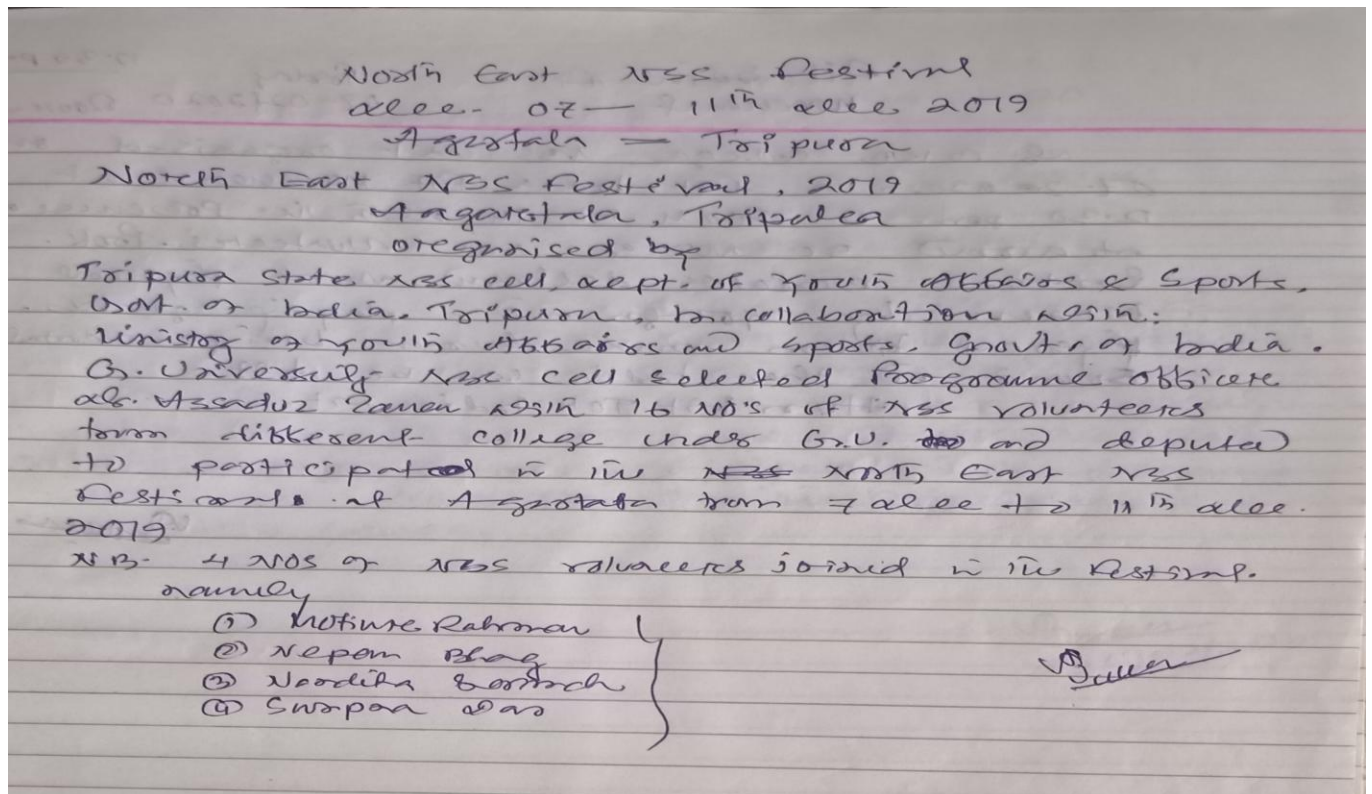 North East NSS Festival
Dec- 07 — 11th Dec. 2019
Agartala — Tripura
North East NSS Festival, 2019
Aagartala, Tripura
oregnised by
Tripura State NSS cell, Dept. of Youth Affairs & Sports,
Govt. of India. Tripura, in collaboration with:
Ministry of Youth Affairs and Sports, Govt. of India.
G. University NSS cell selected Programme officer
Dr. Assaduz Zaman with 16 no's of NSS volunteers
from different college under G.U. and deputed
to participated in the North East NSS
Festival at Agartala from 7 Dec to 11th Dec.
2019
NB- 4 nos of NSS volunteers joined in the Festival.
namely
① Motiure Rahman
② Nepam
③
④ Swapan Das